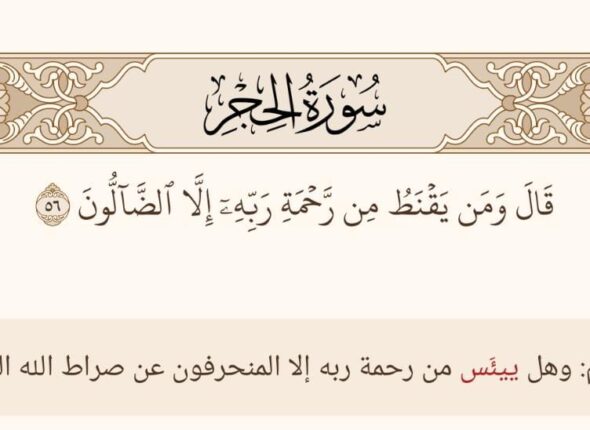 سُورَةُ الحِجْرِ
قَالَ وَمَن يَقْنَطُ مِن رَّحْمَةِ رَبِّهِۦٓ إِلَّا ٱلضَّآلُّونَ ٥٦
وهل ييئَس من رحمة ربه إلا المنحرفون عن صراط الله